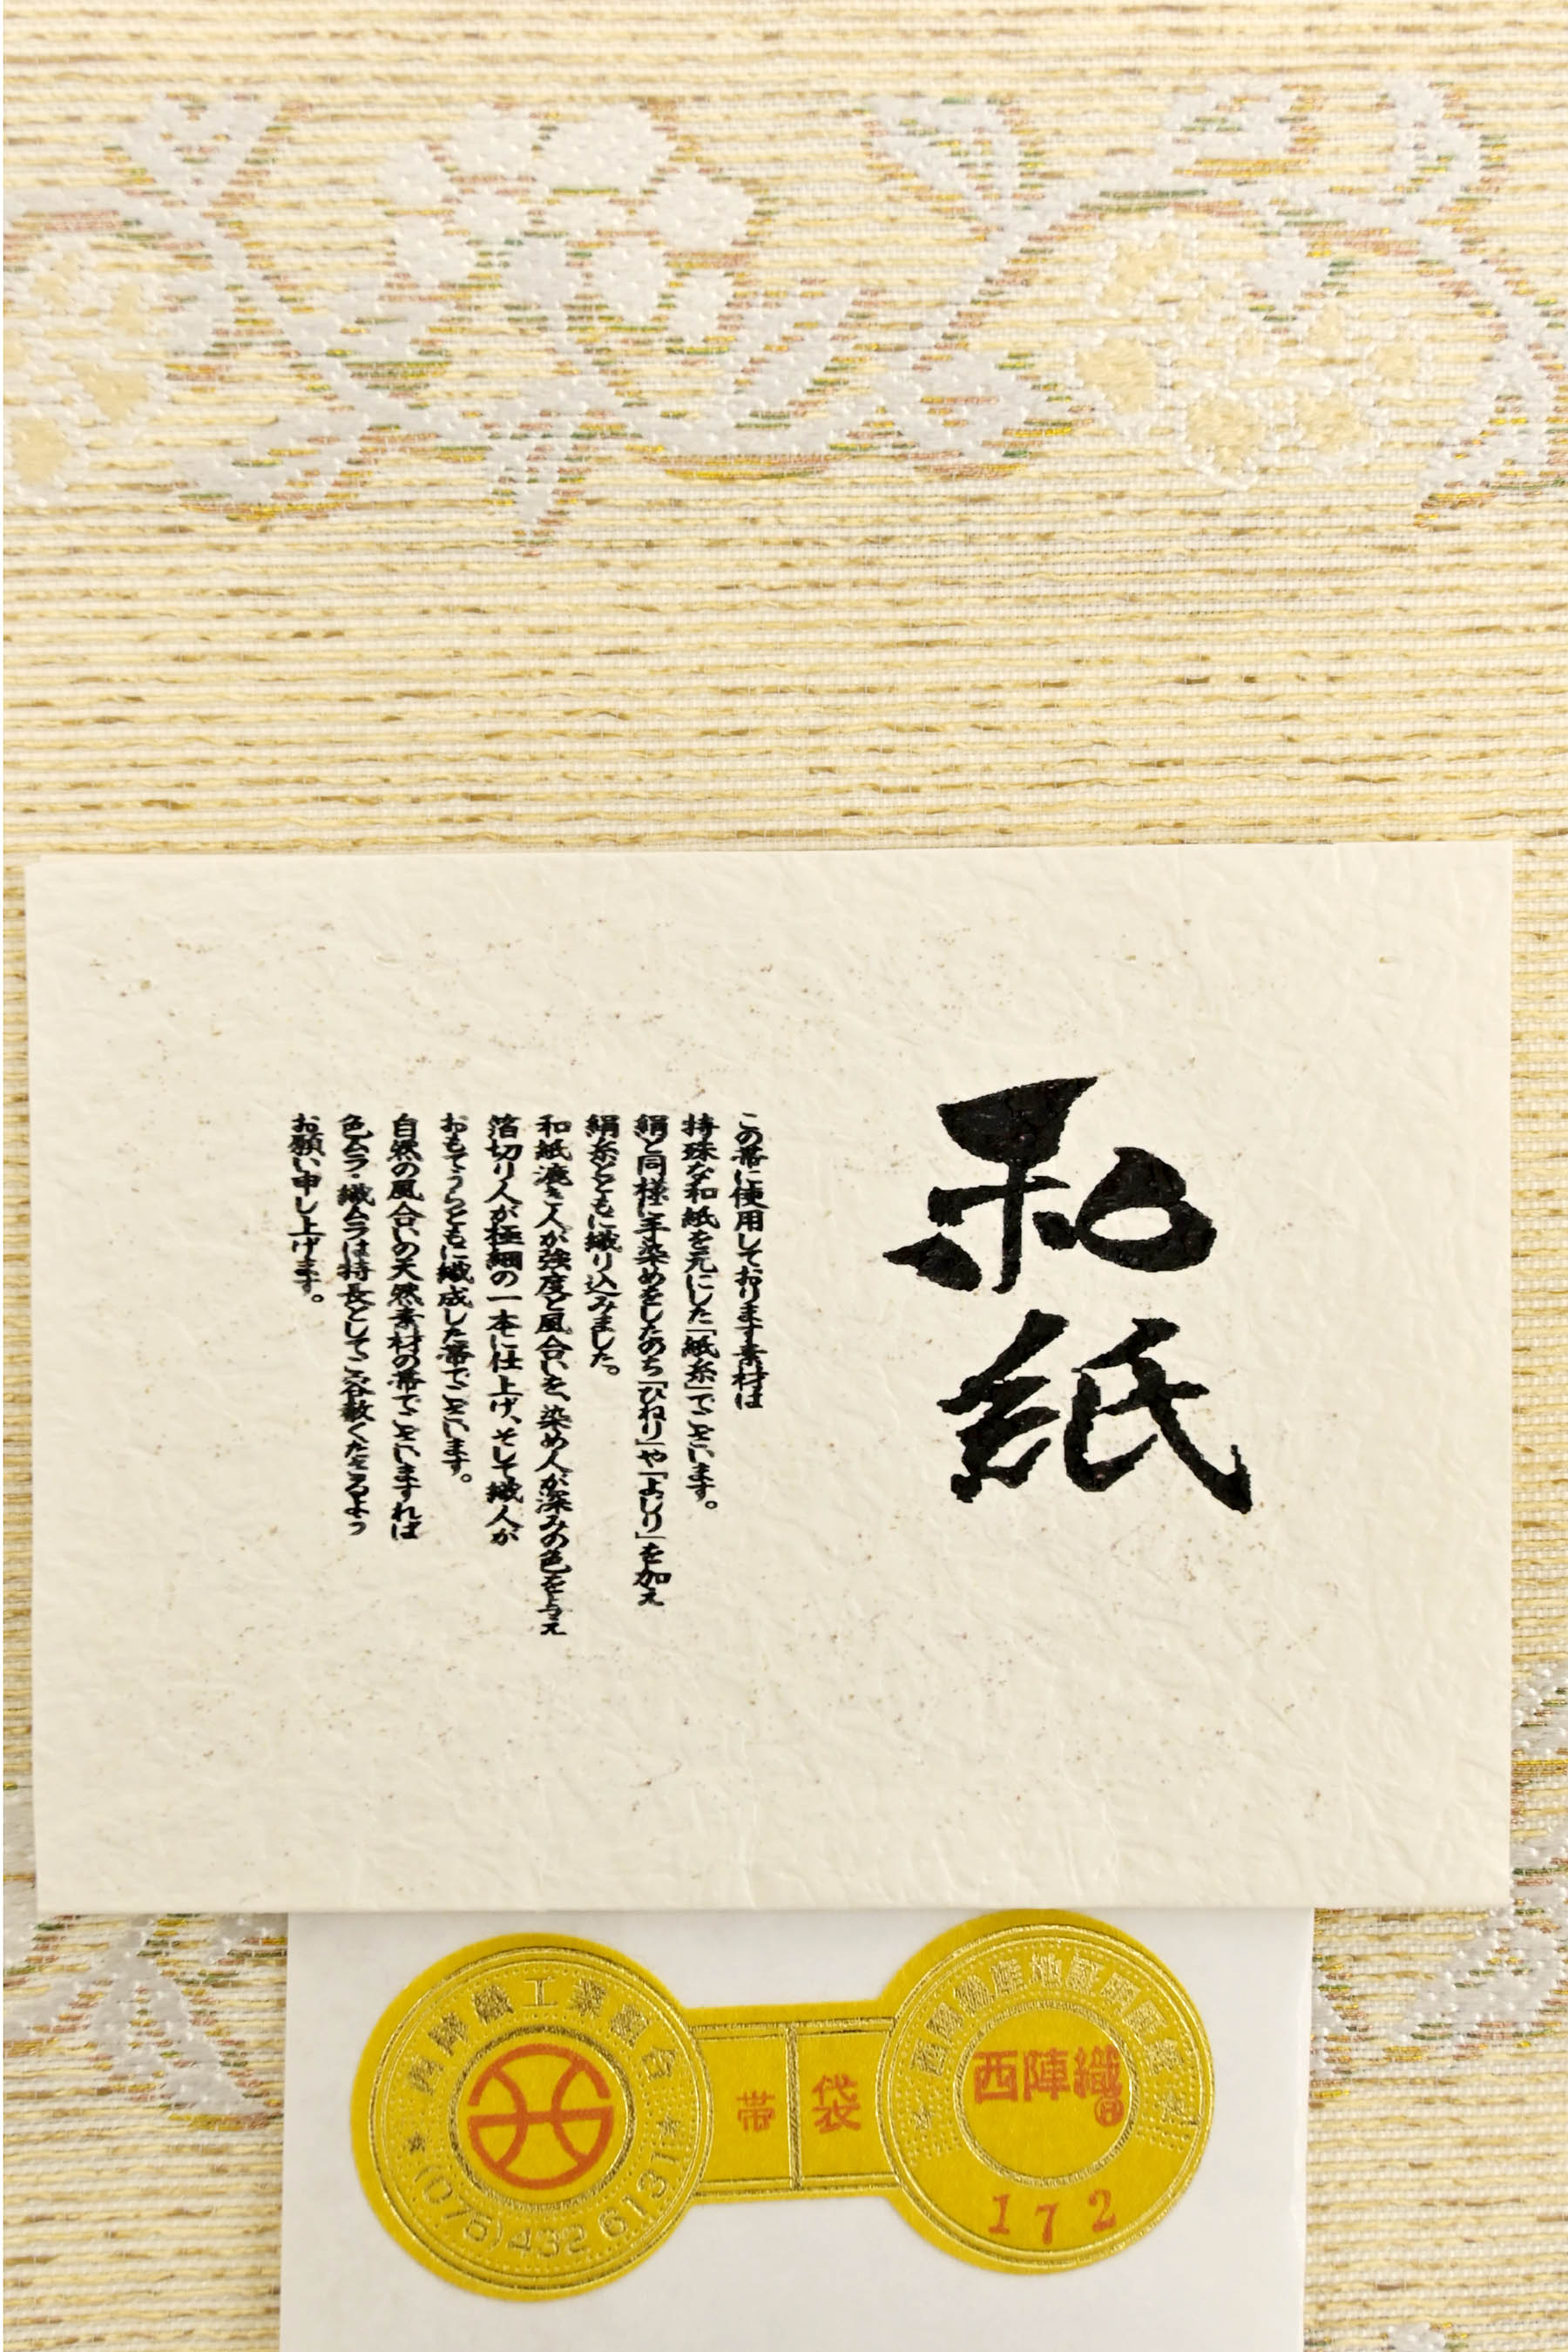 和紙
この帯に使用しております素材は
特殊な和紙を元にした「紙糸」でございます。
絹と同様に手染めをしたのち「ひねり」や「よじり」を加え
絹糸とともに織り込みました。
和紙漉き人が強度と風合いを、染め人が深みの色を与え
箔切り人が極細の一本に仕上げ、そして織人が
おもてうらともに織成した帯でございます。
自然の風合いの天然素材の帯でございますれば
色ムラ・織ムラは特長としてご容赦くださるよう
お願い申し上げます。
西陣織工業組合
(075)432 6131
帯
袋
西陣織産地証明
西陣織
172